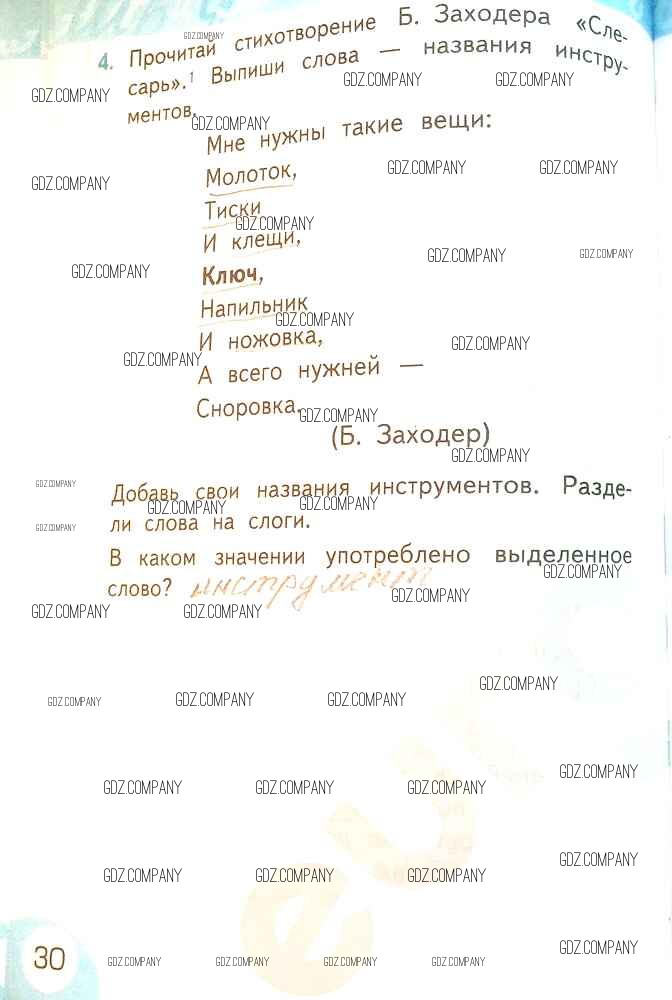 4. Прочитай стихотворение Б. Заходера «Сле-
сарь».¹ Выпиши слова — названия инстру-
ментов.
Мне нужны такие вещи:
Молоток,
Тиски
И клещи,
Ключ,
Напильник
И ножовка,
А всего нужней —
Сноровка.
(Б. Заходер)
Добавь свои названия инструментов. Разде-
ли слова на слоги.
В каком значении употреблено выделенное
слово? инструмент
30
GDZ.COMPANY
GDZ.COMPANY GDZ.COMPANY GDZ.COMPANY
GDZ.COMPANY
GDZ.COMPANY GDZ.COMPANY GDZ.COMPANY
GDZ.COMPANY
GDZ.COMPANY GDZ.COMPANY GDZ.COMPANY
GDZ.COMPANY
GDZ.COMPANY GDZ.COMPANY
GDZ.COMPANY
GDZ.COMPANY
GDZ.COMPANY GDZ.COMPANY GDZ.COMPANY
GDZ.COMPANY
GDZ.COMPANY
GDZ.COMPANY
GDZ.COMPANY GDZ.COMPANY
GDZ.COMPANY
GDZ.COMPANY GDZ.COMPANY GDZ.COMPANY
GDZ.COMPANY
GDZ.COMPANY GDZ.COMPANY GDZ.COMPANY
GDZ.COMPANY
GDZ.COMPANY GDZ.COMPANY GDZ.COMPANY
GDZ.COMPANY
GDZ.COMPANY GDZ.COMPANY GDZ.COMPANY GDZ.COMPANY
eur